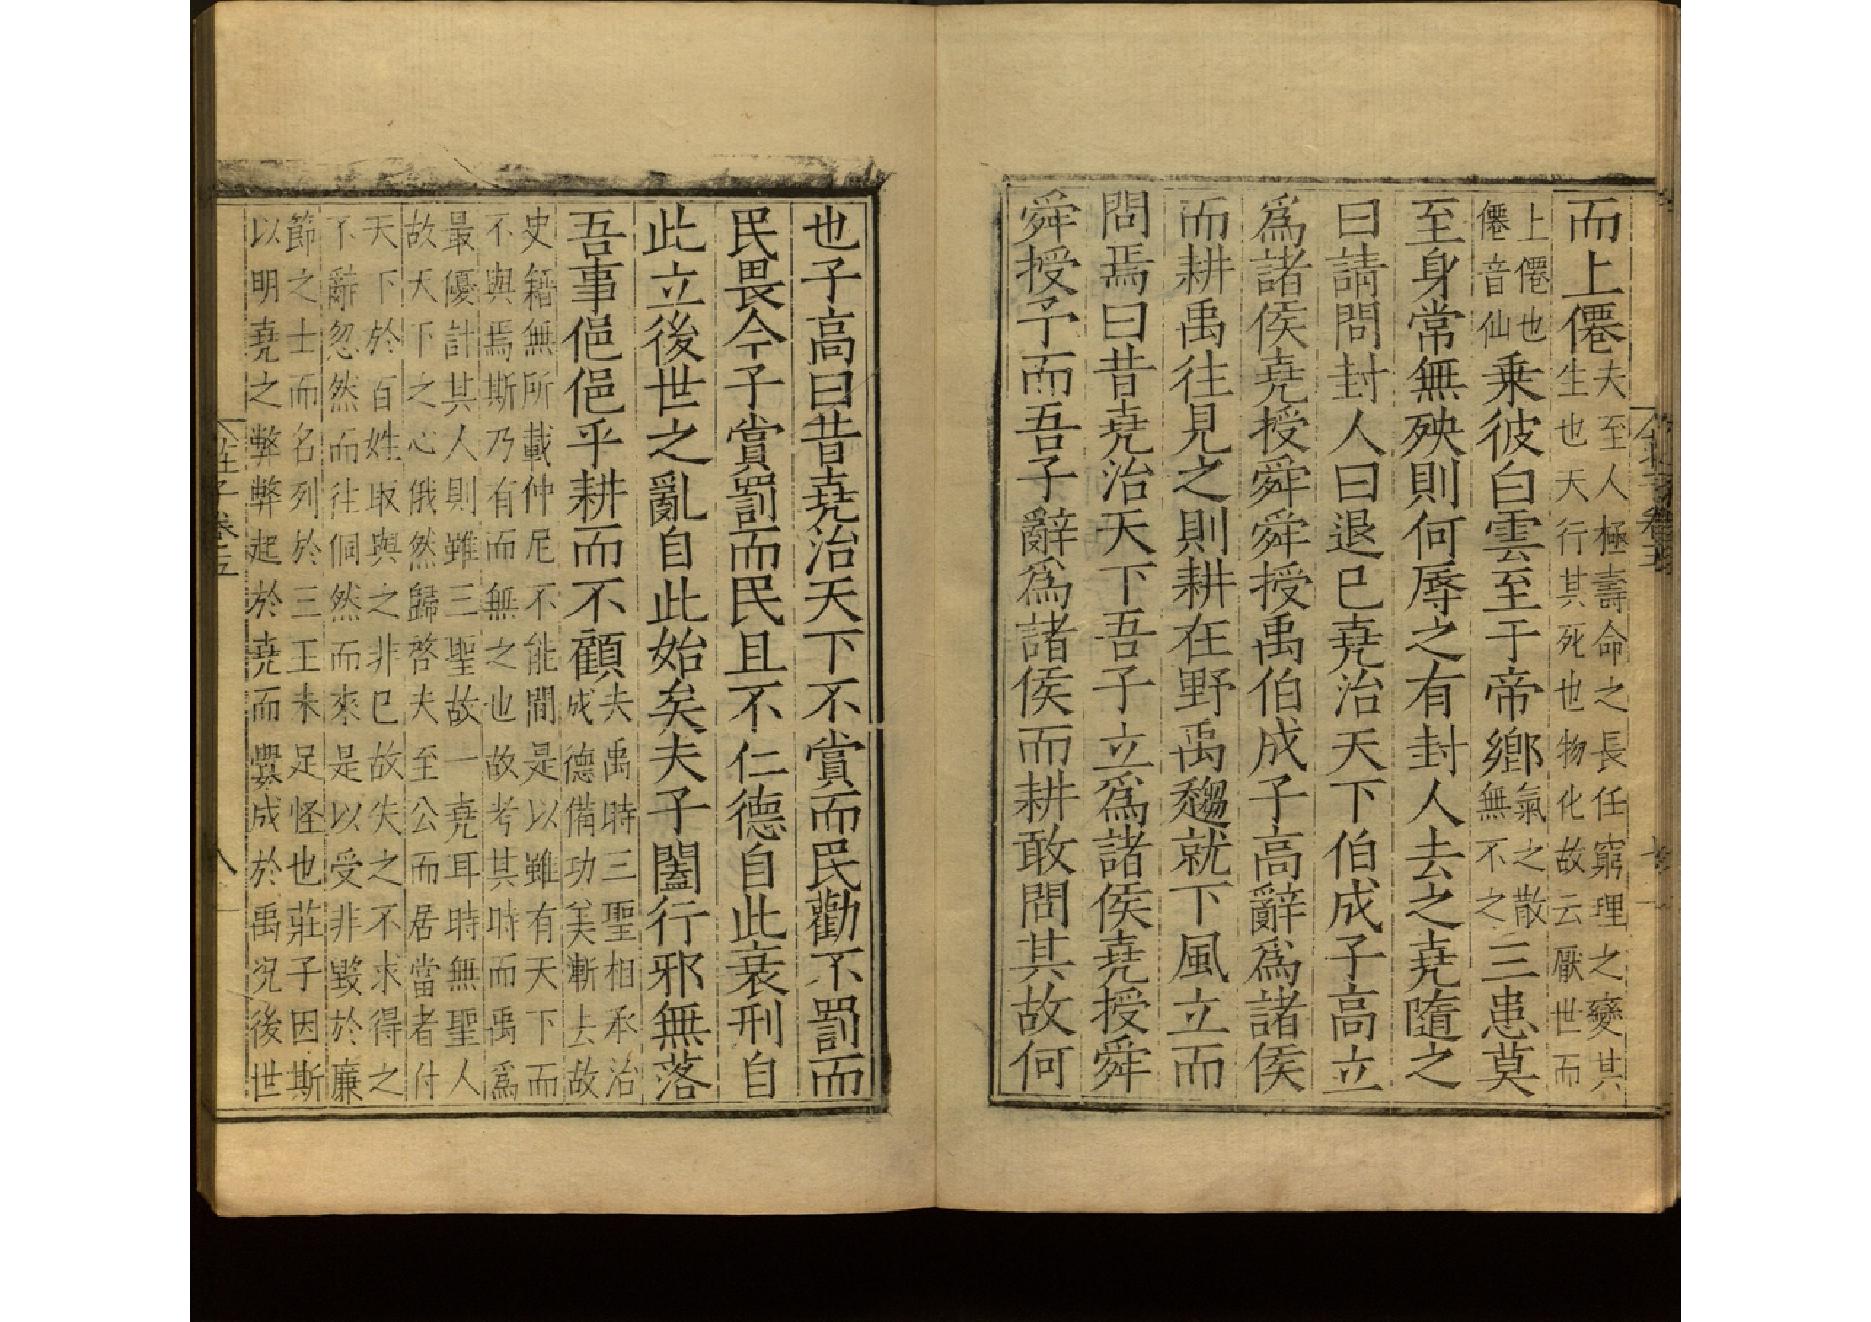 而上僊夫至人極壽命之長任窮理之變其生也天行其死也物化故云厭世而
上僊也僊音仙乘彼白雲至于帝鄉氣之散無不之三患莫
至身常無殃則何辱之有封人去之堯隨之
曰請問封人曰退已堯治天下伯成子高立
爲諸侯堯授舜舜授禹伯成子高辭爲諸侯
而耕禹往見之則耕在野禹趨就下風立而
問焉曰昔堯治天下吾子立爲諸侯堯授舜
舜授予而吾子辭爲諸侯而耕敢問其故何
也子高曰昔堯治天下不賞而民勸不罰而
民畏今子賞罰而民且不仁德自此衰刑自
此立後世之亂自此始矣夫子闔行邪無落
吾事俋俋乎耕而不顧夫禹時三聖相承治成德備功美漸去故
史籍無所載仲尼不能間是以雖有天下而
不與焉斯乃有而無之也故考其時而禹爲
最優計其人則雖三聖故一堯耳時無聖人
故天下之心俄然歸啓夫至公而居當者付
天下於百姓取與之非已故失之不求得之
不辭忽然而往侗然而來是以受非毀於廉
節之士而名列於三王未足怪也莊子因斯
以明堯之弊弊起於堯而釁成於禹況後世
莊子卷五
八